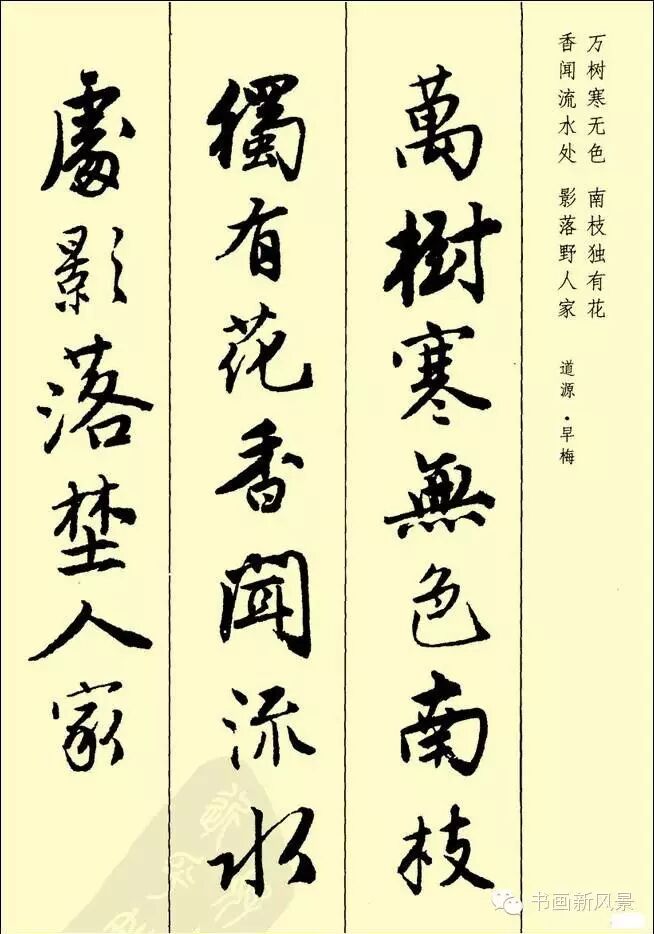 万树寒无色 南枝独有花
香闻流水处 影落野人家
道源·早梅
萬樹寒無色南枝
獨有花香聞流水
處影落埜人家
书画新风景